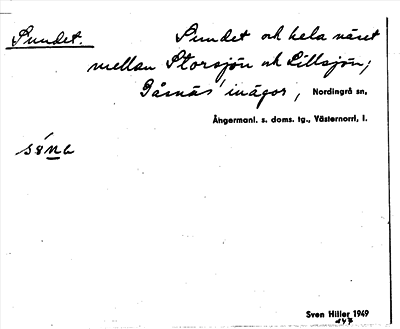 Sundet. Sundet och hela näset
mellan Storsjön och Lillsjön;
Gåsnäs inägor, Nordingrå sn,
Ångermanl. s. doms. tg., Västernorrl, l.
Sven Hiller 1949